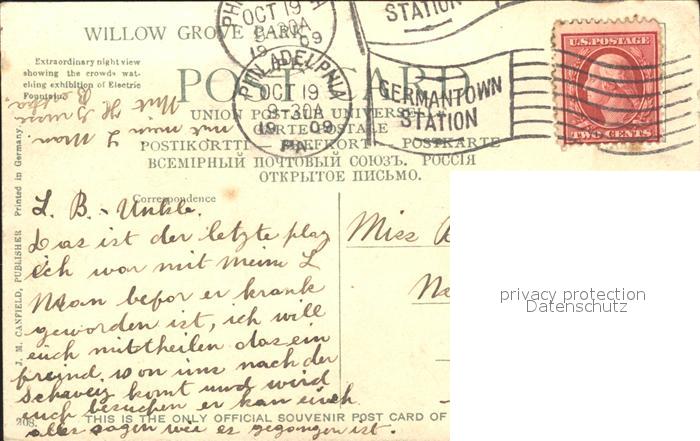 WILLOW GROVE PARK,
Extraordinary night view
showing the crowds wat-
ching exhibition of Electric
Fountain.
POST CARD
UNION POSTALE UNIVERSELLE
CARTE POSTALE
POSTIKORTTI — BREFKORT — POSTKARTE
ВСЕМІРНЫЙ ПОЧТОВЫЙ СОЮЗЪ. РОССІЯ
ОТКРЫТОЕ ПИСЬМО.
PHILADELPHIA
OCT 19
8-30A
1909
PA.
STATION
PHILADELPHIA
OCT 19
9-30A
1909
PA.
GERMANTOWN
STATION
U.S. POSTAGE
TWO CENTS
Correspondence
L. B. Unkle.
Das ist der letzte plaz
ich war mit meine L
Man befor er krank
geworden ist, ich will
euch mittheilen das ein
freind von uns nach der
Schweiz komt und wird
euch besuchen er kan euch
alles sagen wie es gegangen ist.
mit mein L Man.
Miss
Ne
J. M. CANFIELD, PUBLISHER Printed in Germany.
208. THIS IS THE ONLY OFFICIAL SOUVENIR POST CARD OF
privacy protection
Datenschutz